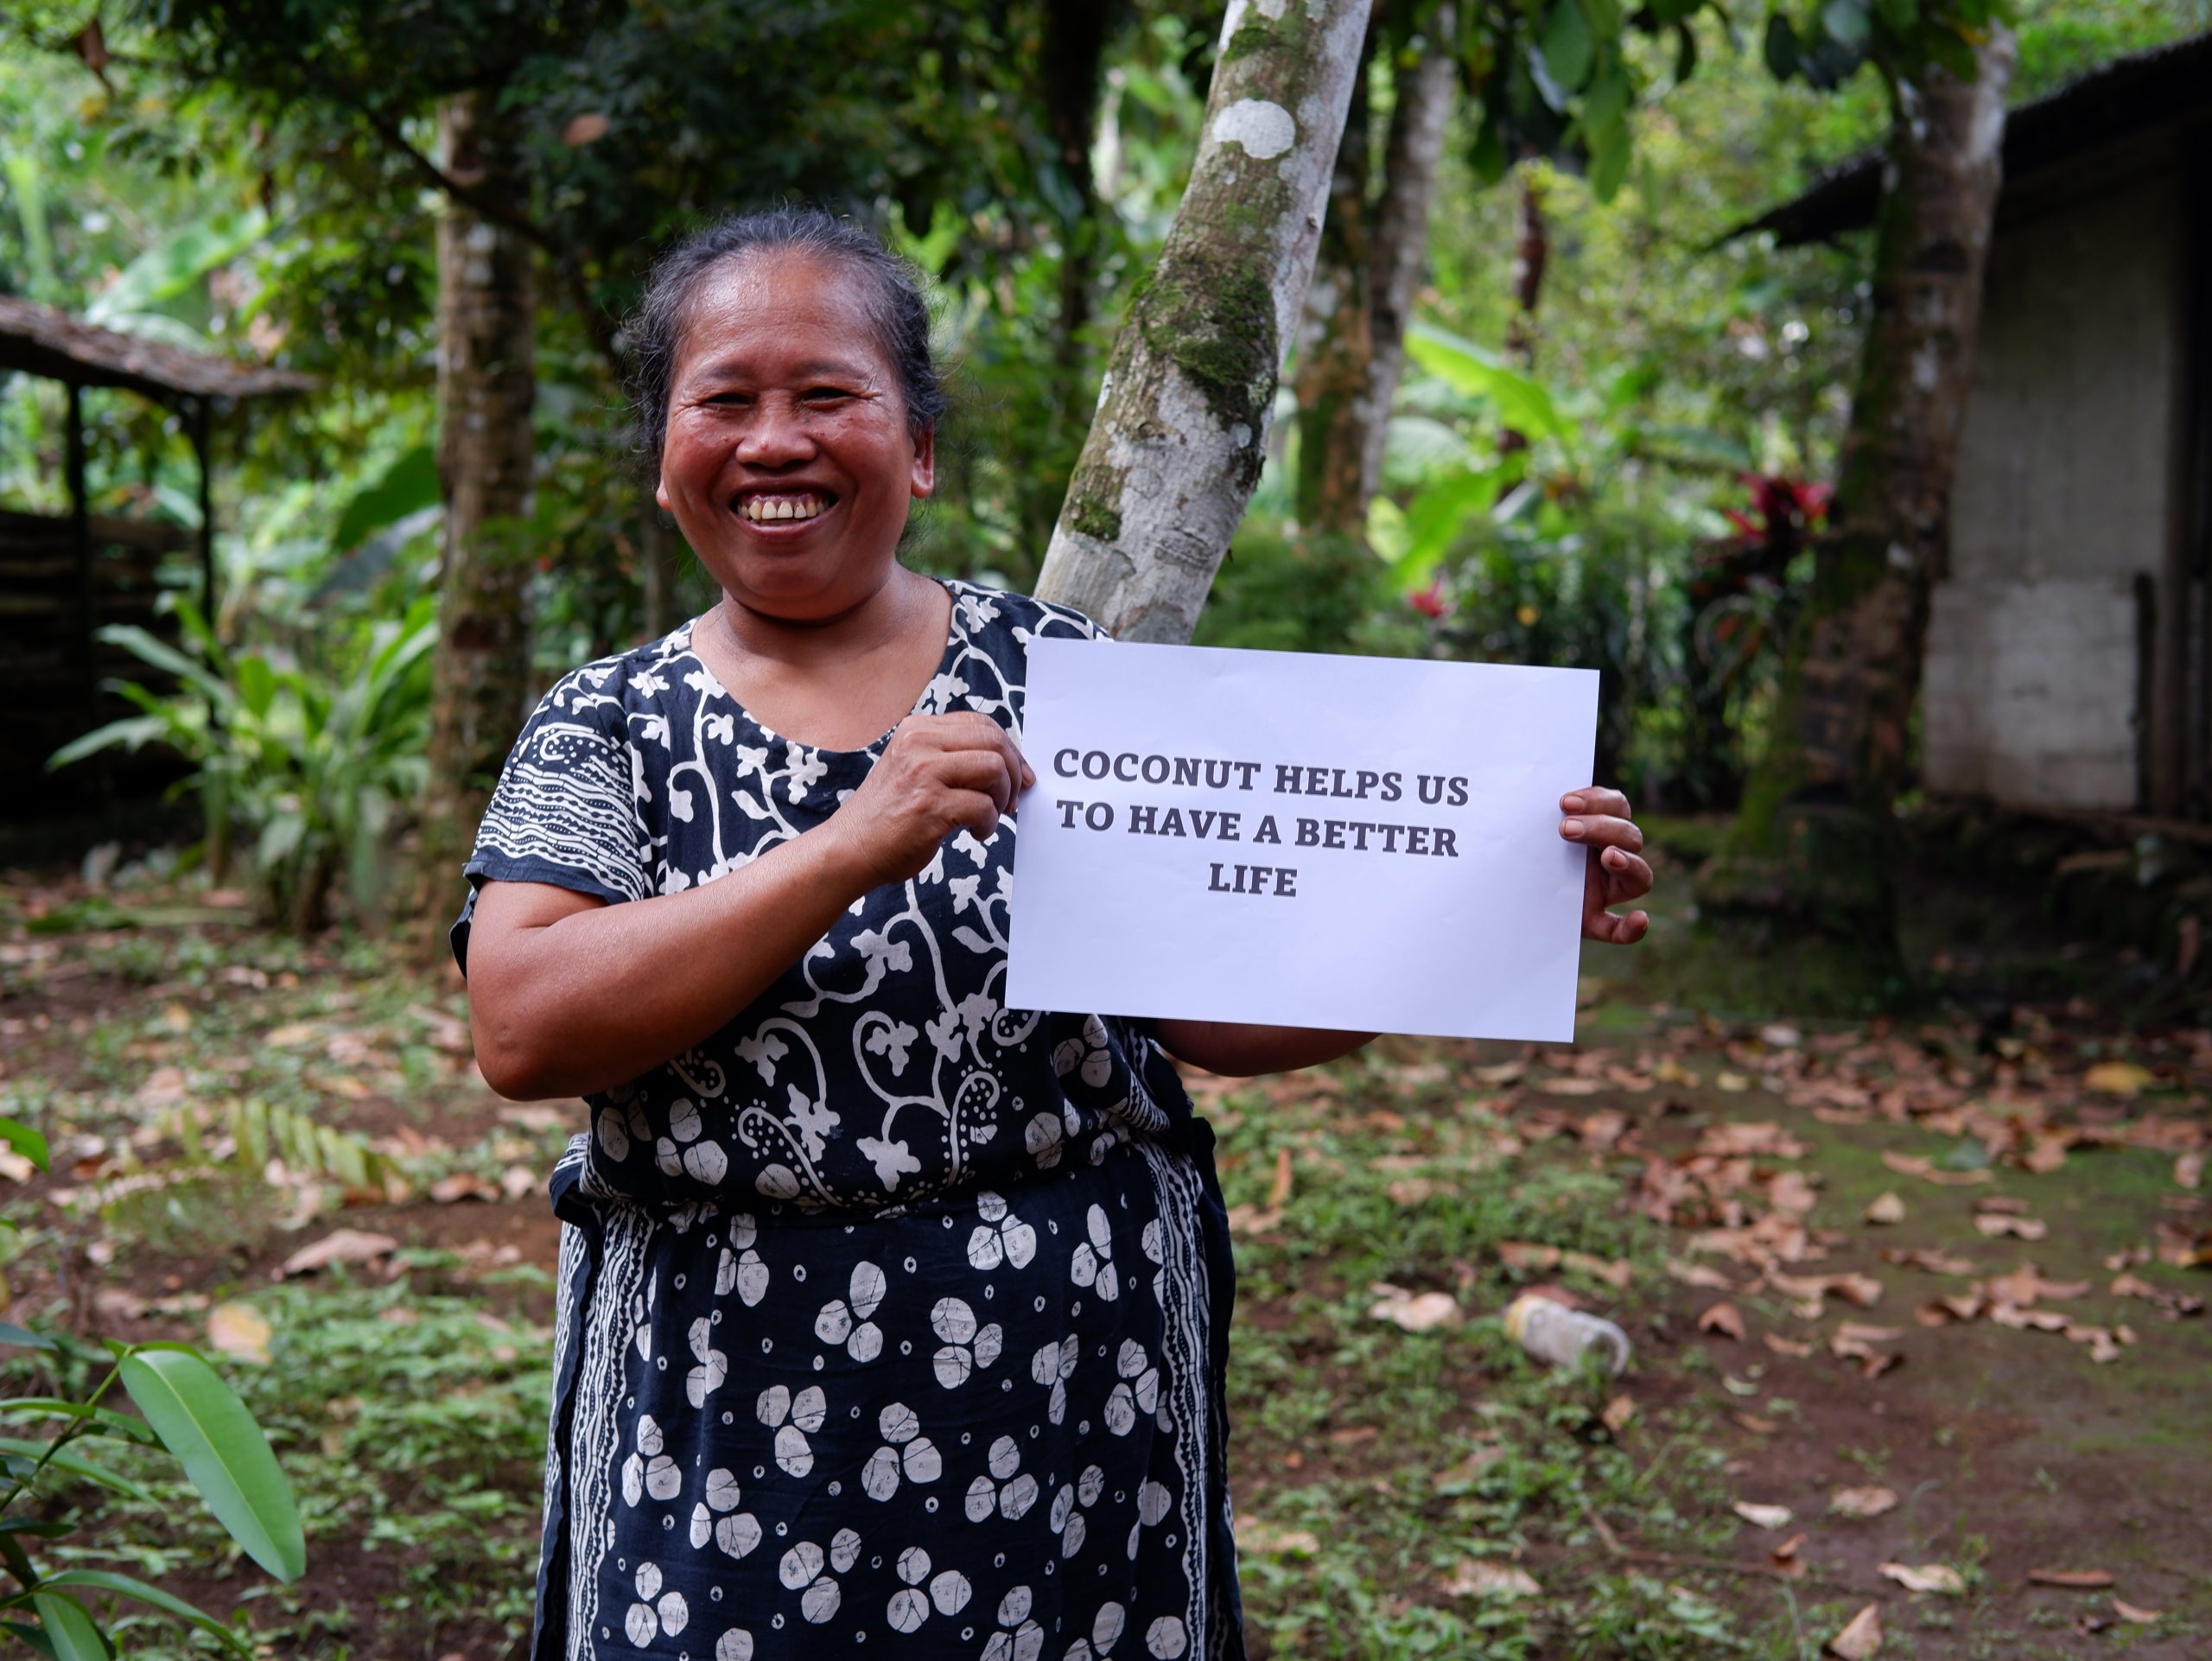 COCONUT HELPS US
TO HAVE A BETTER
LIFE